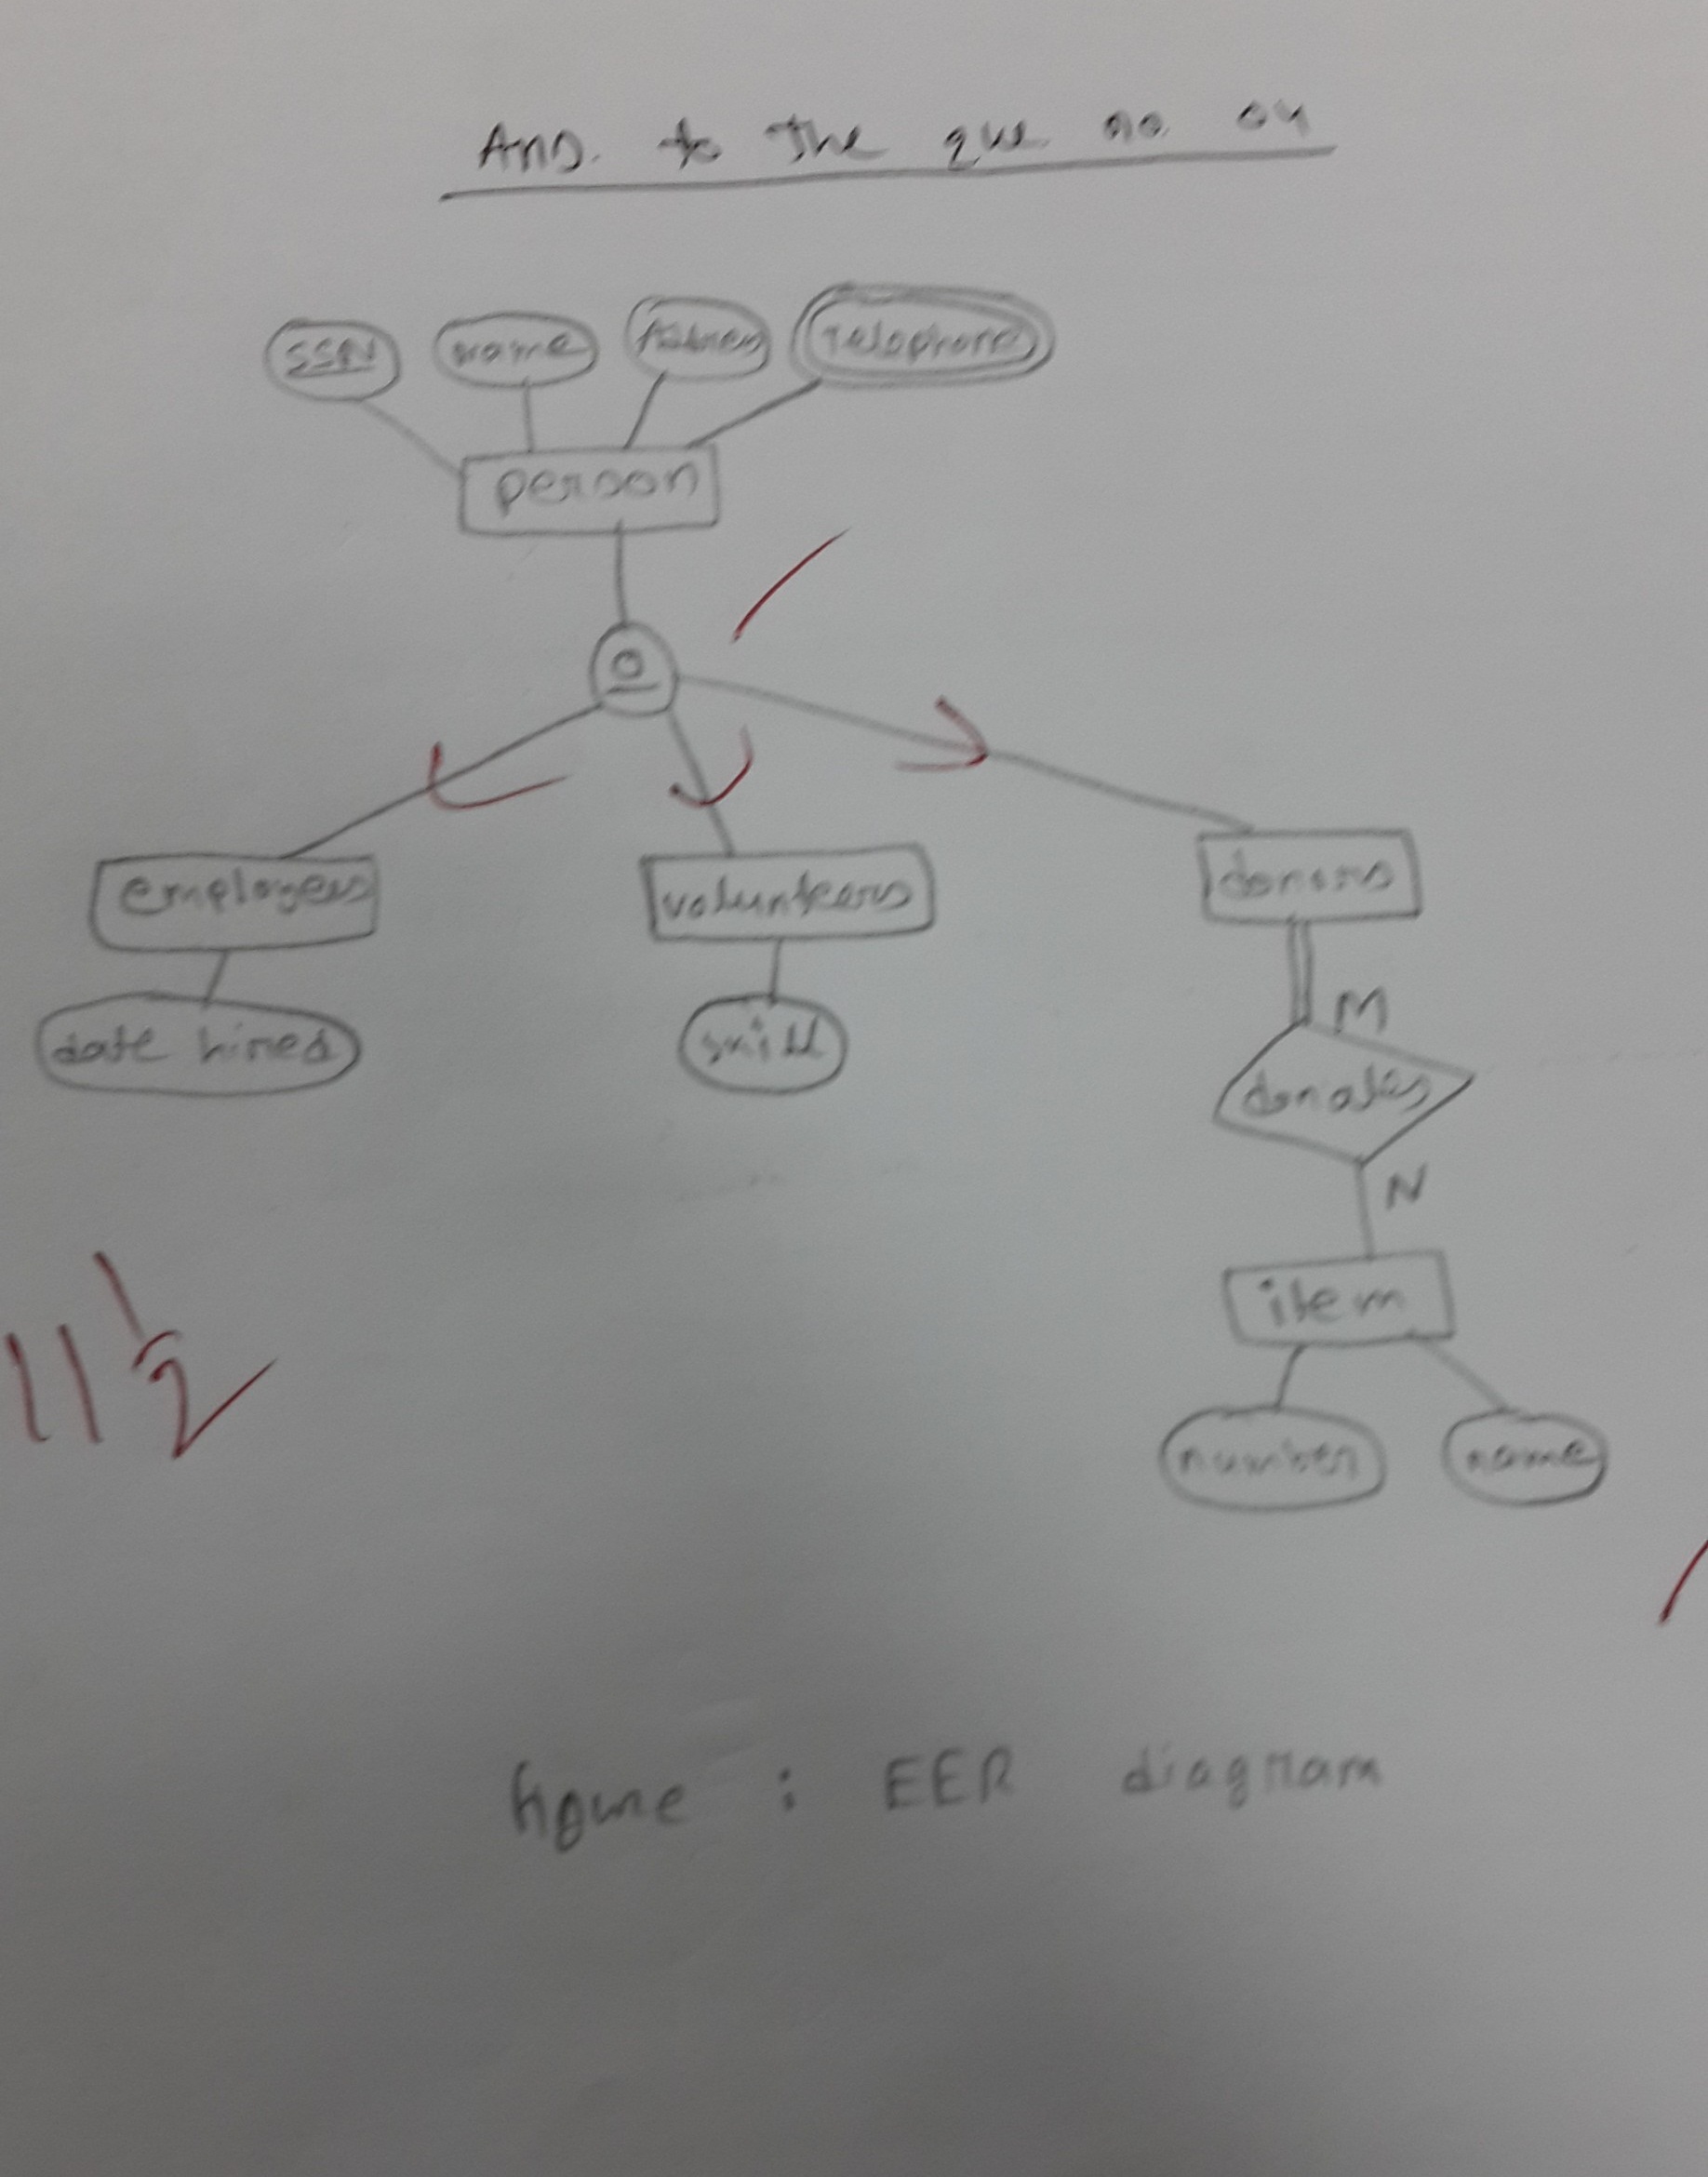 Ans. to the que no. 04
SSN name Address Telephone
person
O
employees volunteers donors
date hired skill
M
donates
N
item
number name
11 1/2
figure : EER diagram